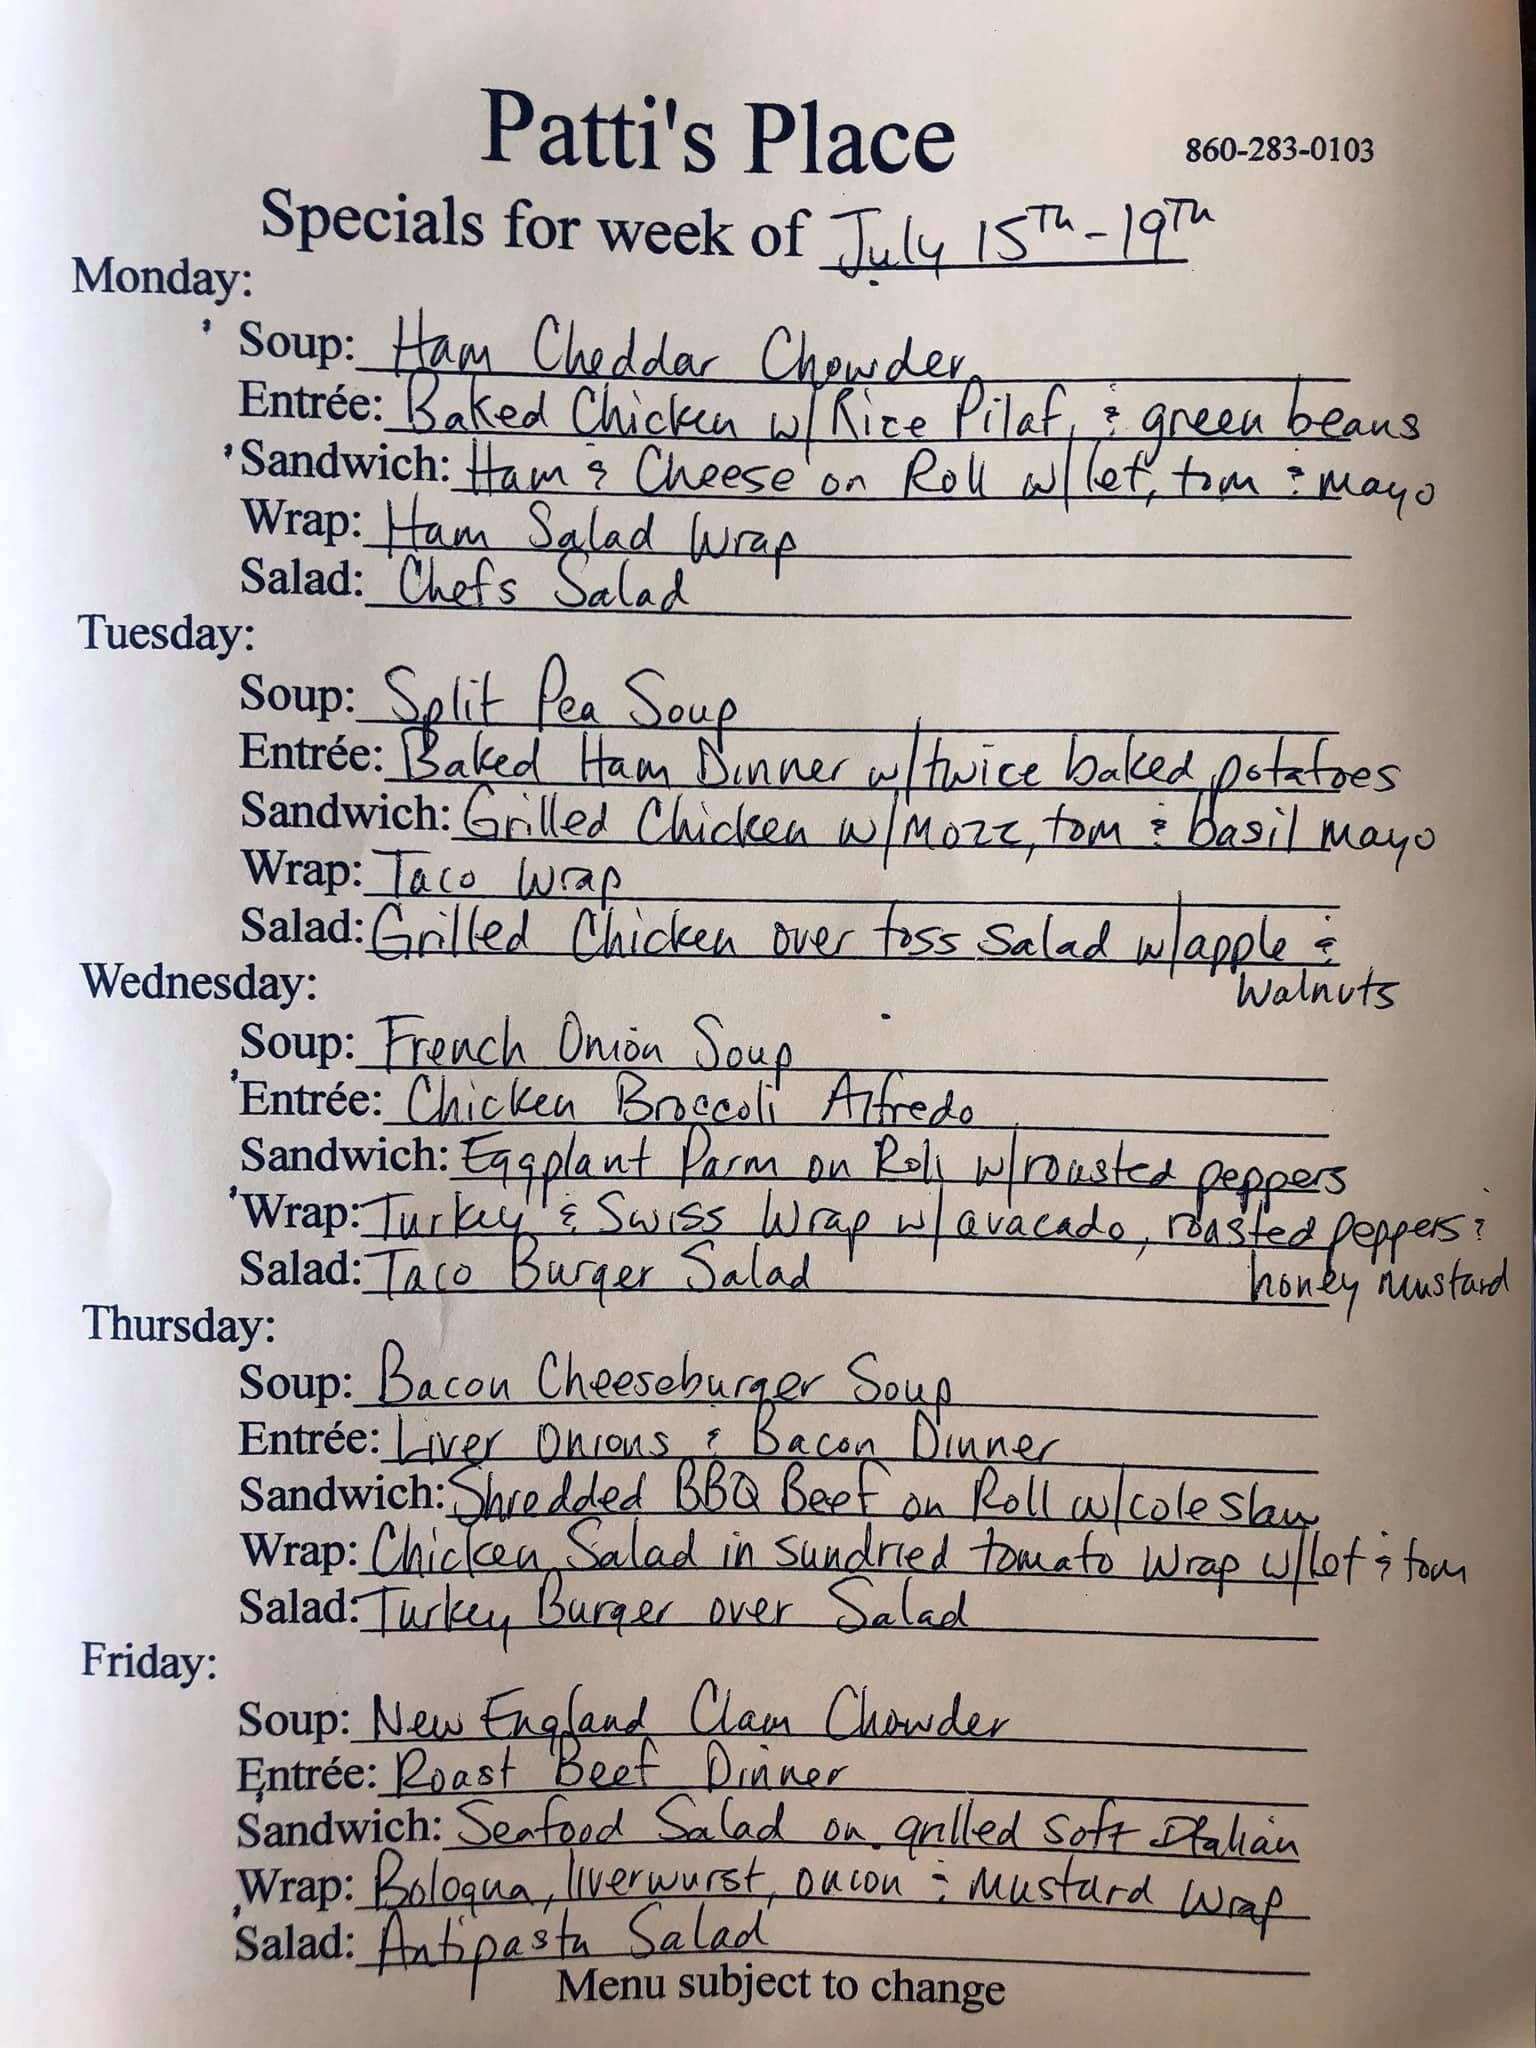 Patti's Place
860-283-0103
Specials for week of July 15Th-19Th
Monday:
Soup: Ham Cheddar Chowder
Entrée: Baked Chicken w/Rice Pilaf, & green beans
Sandwich: Ham & Cheese on Roll w/let, tom & mayo
Wrap: Ham Salad Wrap
Salad: Chefs Salad
Tuesday:
Soup: Split Pea Soup
Entrée: Baked Ham Dinner w/twice baked potatoes
Sandwich: Grilled Chicken w/Mozz, tom & basil mayo
Wrap: Taco Wrap
Salad: Grilled Chicken over toss salad w/apple &
walnuts
Wednesday:
Soup: French Onion Soup
Entrée: Chicken Broccoli Alfredo
Sandwich: Eggplant Parm on Roll w/roasted peppers
Wrap: Turkey & Swiss Wrap w/avacado, roasted peppers &
honey mustard
Salad: Taco Burger Salad
Thursday:
Soup: Bacon Cheeseburger Soup
Entrée: Liver Onions & Bacon Dinner
Sandwich: Shredded BBQ Beef on Roll w/coleslaw
Wrap: Chicken Salad in sundried tomato wrap w/let & tom
Salad: Turkey Burger over Salad
Friday:
Soup: New England Clam Chowder
Entrée: Roast Beef Dinner
Sandwich: Seafood Salad on grilled soft Italian
Wrap: Bologna, liverwurst, onion & mustard wrap
Salad: Antipasta Salad
Menu subject to change